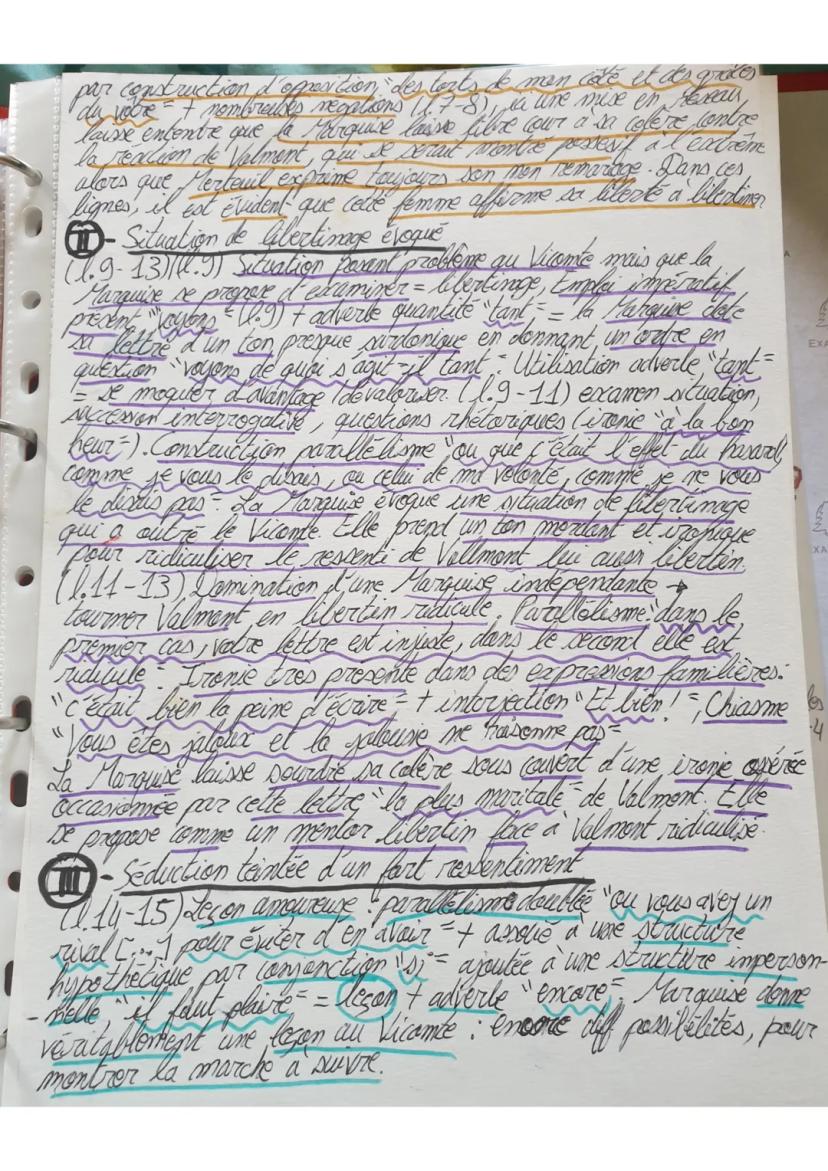 par construction d'opposition "des torts de mon côté et des grâces
du vôtre" + nombreuses négations (l.7-8), où une mise en réseau
laisse entendre que la Marquise laisse libre cour à sa colère contre
la réaction de Valmont, qui se serait montré possessif à l'extrême
alors que Merteuil exprime toujours son non remariage. Dans ces
lignes, il est évident que cette femme affirme sa liberté à libertiner
II - Situation de libertinage évoqué
(l.9-13)(l.9) Situation posant problème au Vicomte mais que la
Marquise se propose d'examiner = libertinage, Emploi impératif
présent "voyons" (l.9) + adverbe quantité "tant" = la Marquise dote
sa lettre d'un ton presque sardonique en donnant un ordre en
question "voyons de quoi s'agit-il tant". Utilisation adverbe "tant"
= se moquer d'avantage/dévaloriser. (l.9-11) examen situation,
succession interrogative, questions rhétoriques (ironie "à la bon
heur"). Construction parallélisme "ou que c'était l'effet du hasard,
comme je vous le disais, ou celui de ma volonté, comme je ne vous
le disais pas". La Marquise évoque une situation de libertinage
qui a outré le Vicomte. Elle prend un ton mordant et ironique
pour ridiculiser le ressenti de Vallmont lui aussi libertin.
(l.11-13) Domination d'une Marquise indépendante →
tourner Valmont en libertin ridicule. Parallélisme "dans le
premier cas, votre lettre est injuste, dans le second elle est
ridicule". Ironie très présente dans des expressions familières:
"c'était bien la peine d'écrire" + interjection "Et bien!", Chiasme
"Vous êtes jaloux et la jalousie ne raisonne pas"
La Marquise laisse sourdre sa colère sous couvert d'une ironie assérée
occasionnée par cette lettre "la plus maritale" de Valmont. Elle
se propose comme un mentor libertin face à Valmont ridiculisé.
III - Séduction teintée d'un fort ressentiment
(l.14-15) Leçon amoureuse: parallélisme doublée "ou vous avez un
rival [...] pour éviter d'en avoir" + associé à une structure
hypothétique par conjonction "si" ajoutée à une structure imperson-
-nelle "il faut plaire" = leçon + adverbe "encore". Marquise donne
véritablement une leçon au Vicomte: encore diff possibilités, pour
montrer la marche à suivre.